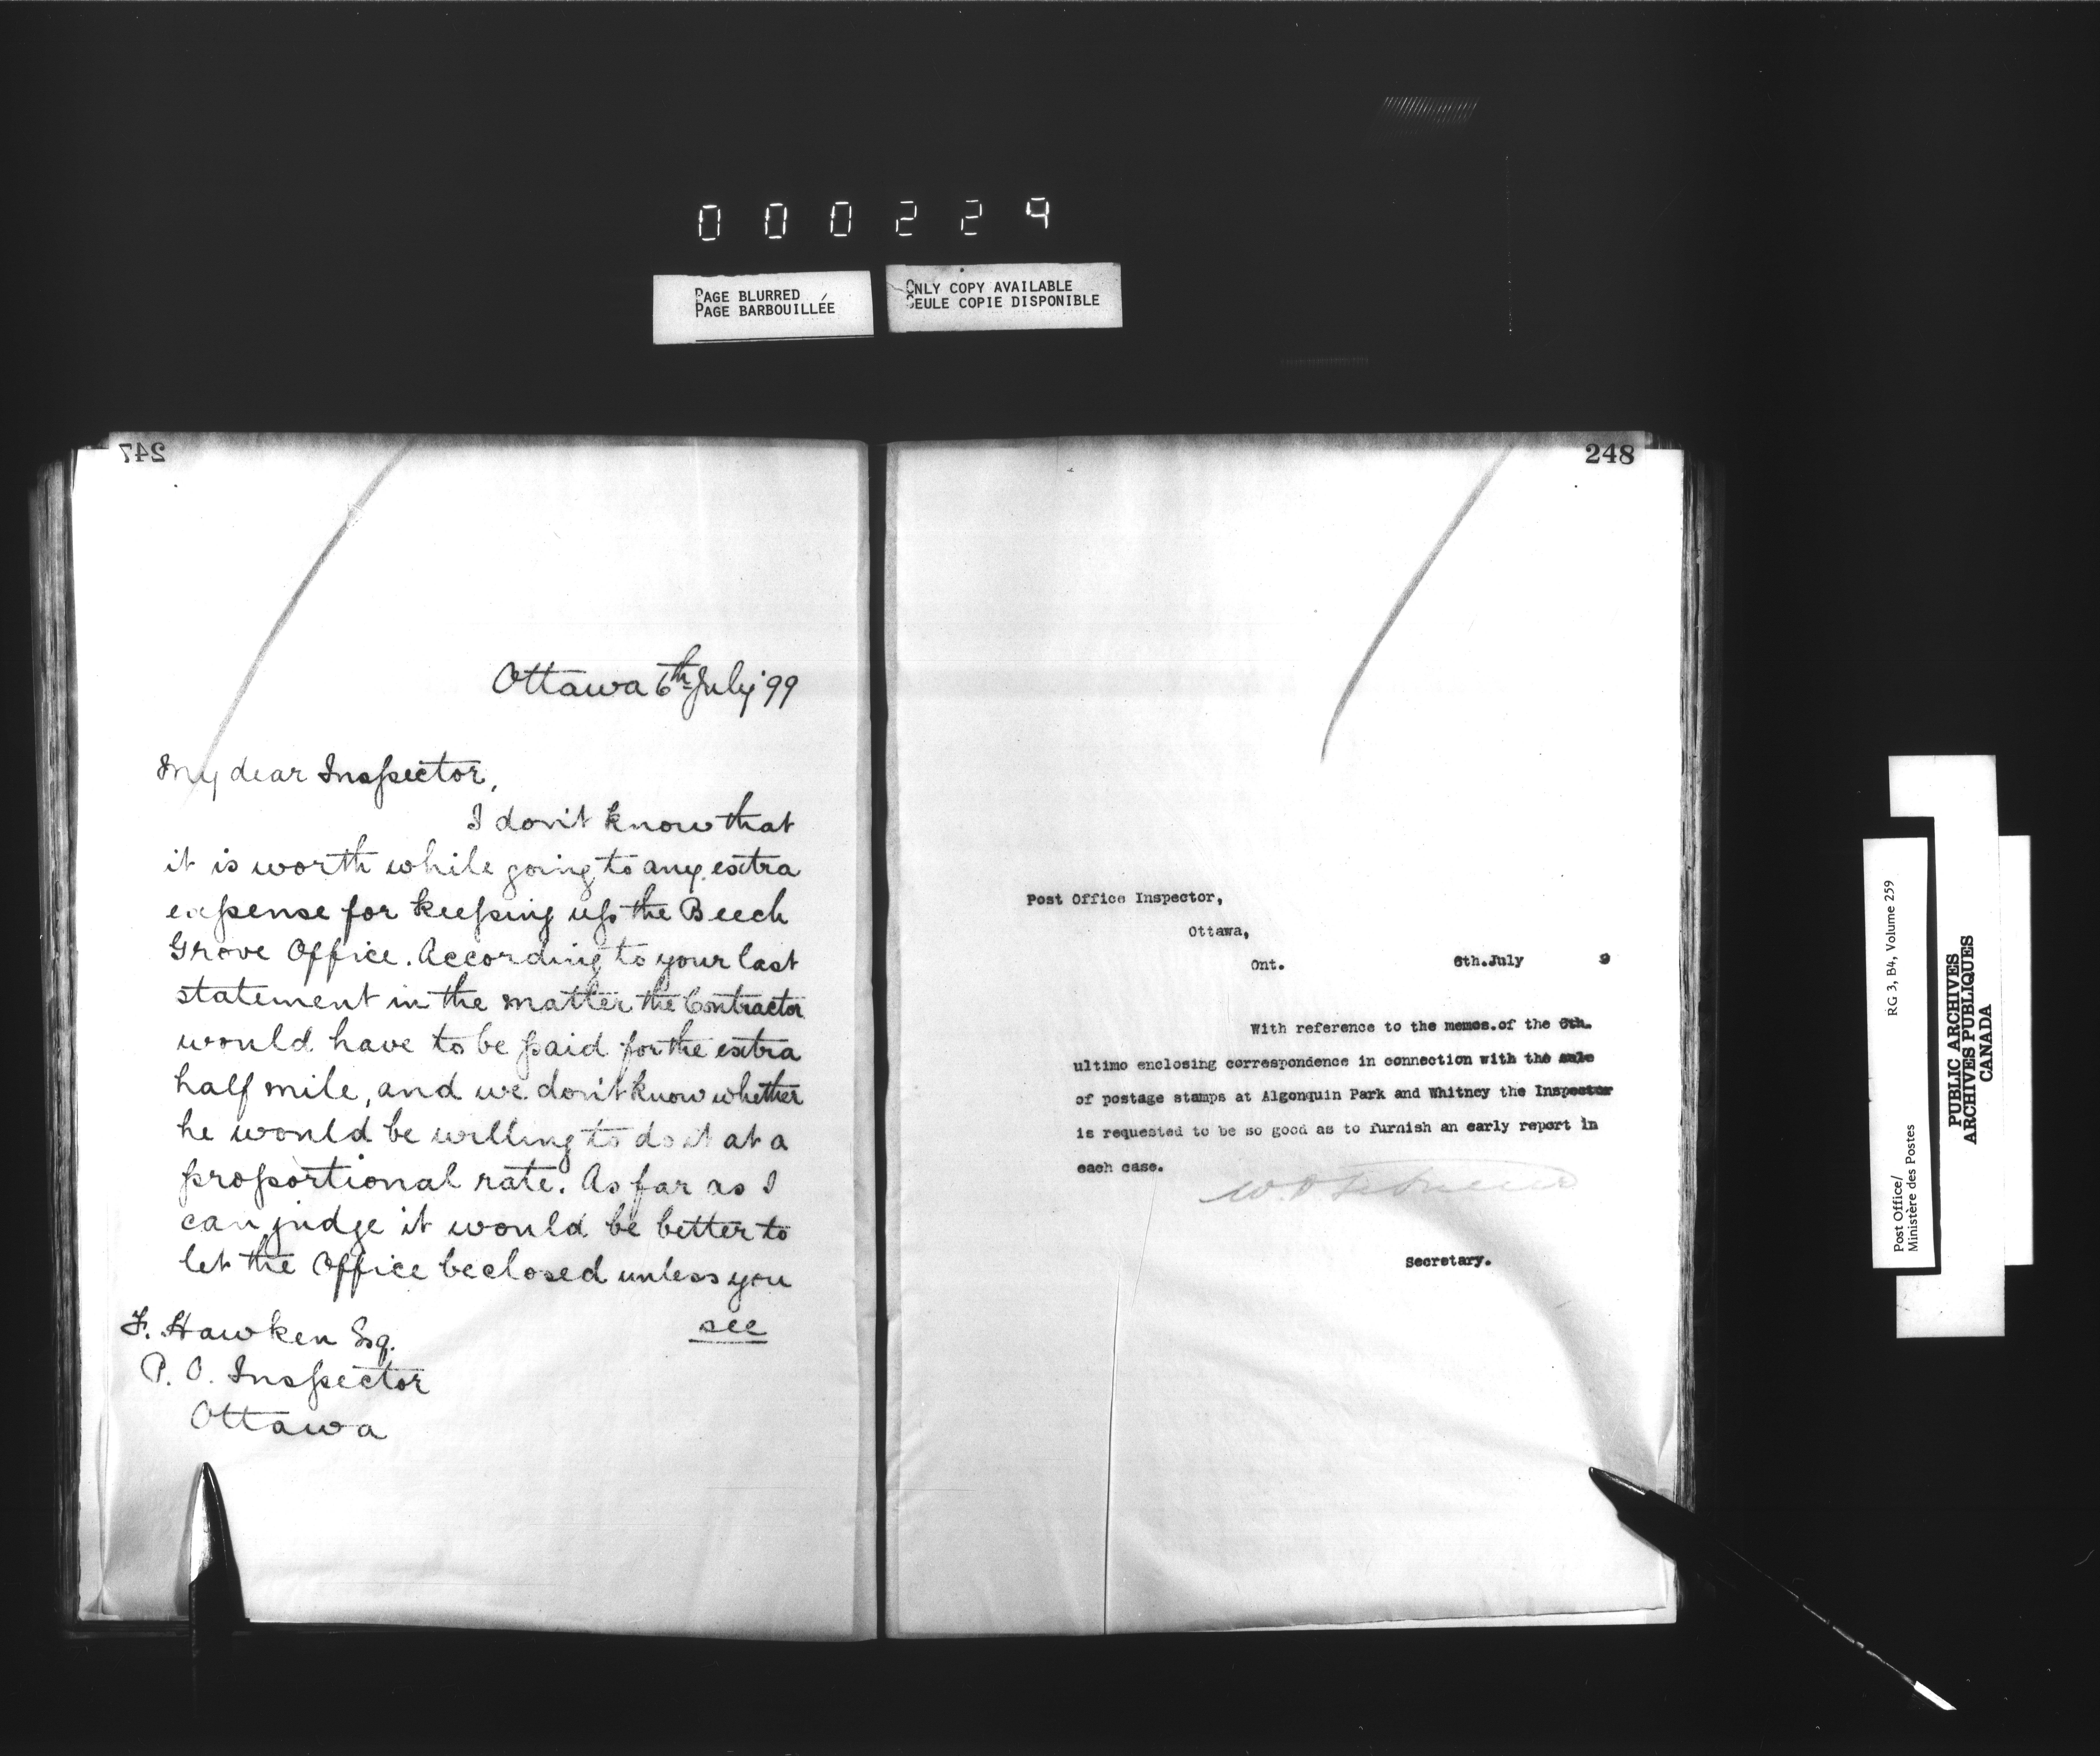 000229
PAGE BLURRED
PAGE BARBOUILLÉE
ONLY COPY AVAILABLE
SEULE COPIE DISPONIBLE
247
Ottawa 6th July '99
My dear Inspector,
I don't know that
it is worth while going to any extra
expense for keeping up the Beech
Grove Office. According to your last
statement in the matter the Contractor
would have to be paid for the extra
half mile, and we don't know whether
he would be willing to do it at a
proportional rate. As far as I
can judge it would be better to
let the Office be closed unless you
see
F. Hawken Esq.
P. O. Inspector
Ottawa
248
Post Office Inspector,
Ottawa,
Ont. 6th.July 9
With reference to the memos.of the 6th.
ultimo enclosing correspondence in connection with the sale
of postage stamps at Algonquin Park and Whitney the Inspector
is requested to be so good as to furnish an early report in
each case.
Secretary.
Post Office/
Ministère des Postes
RG 3, B4, Volume 259
PUBLIC ARCHIVES
ARCHIVES PUBLIQUES
CANADA